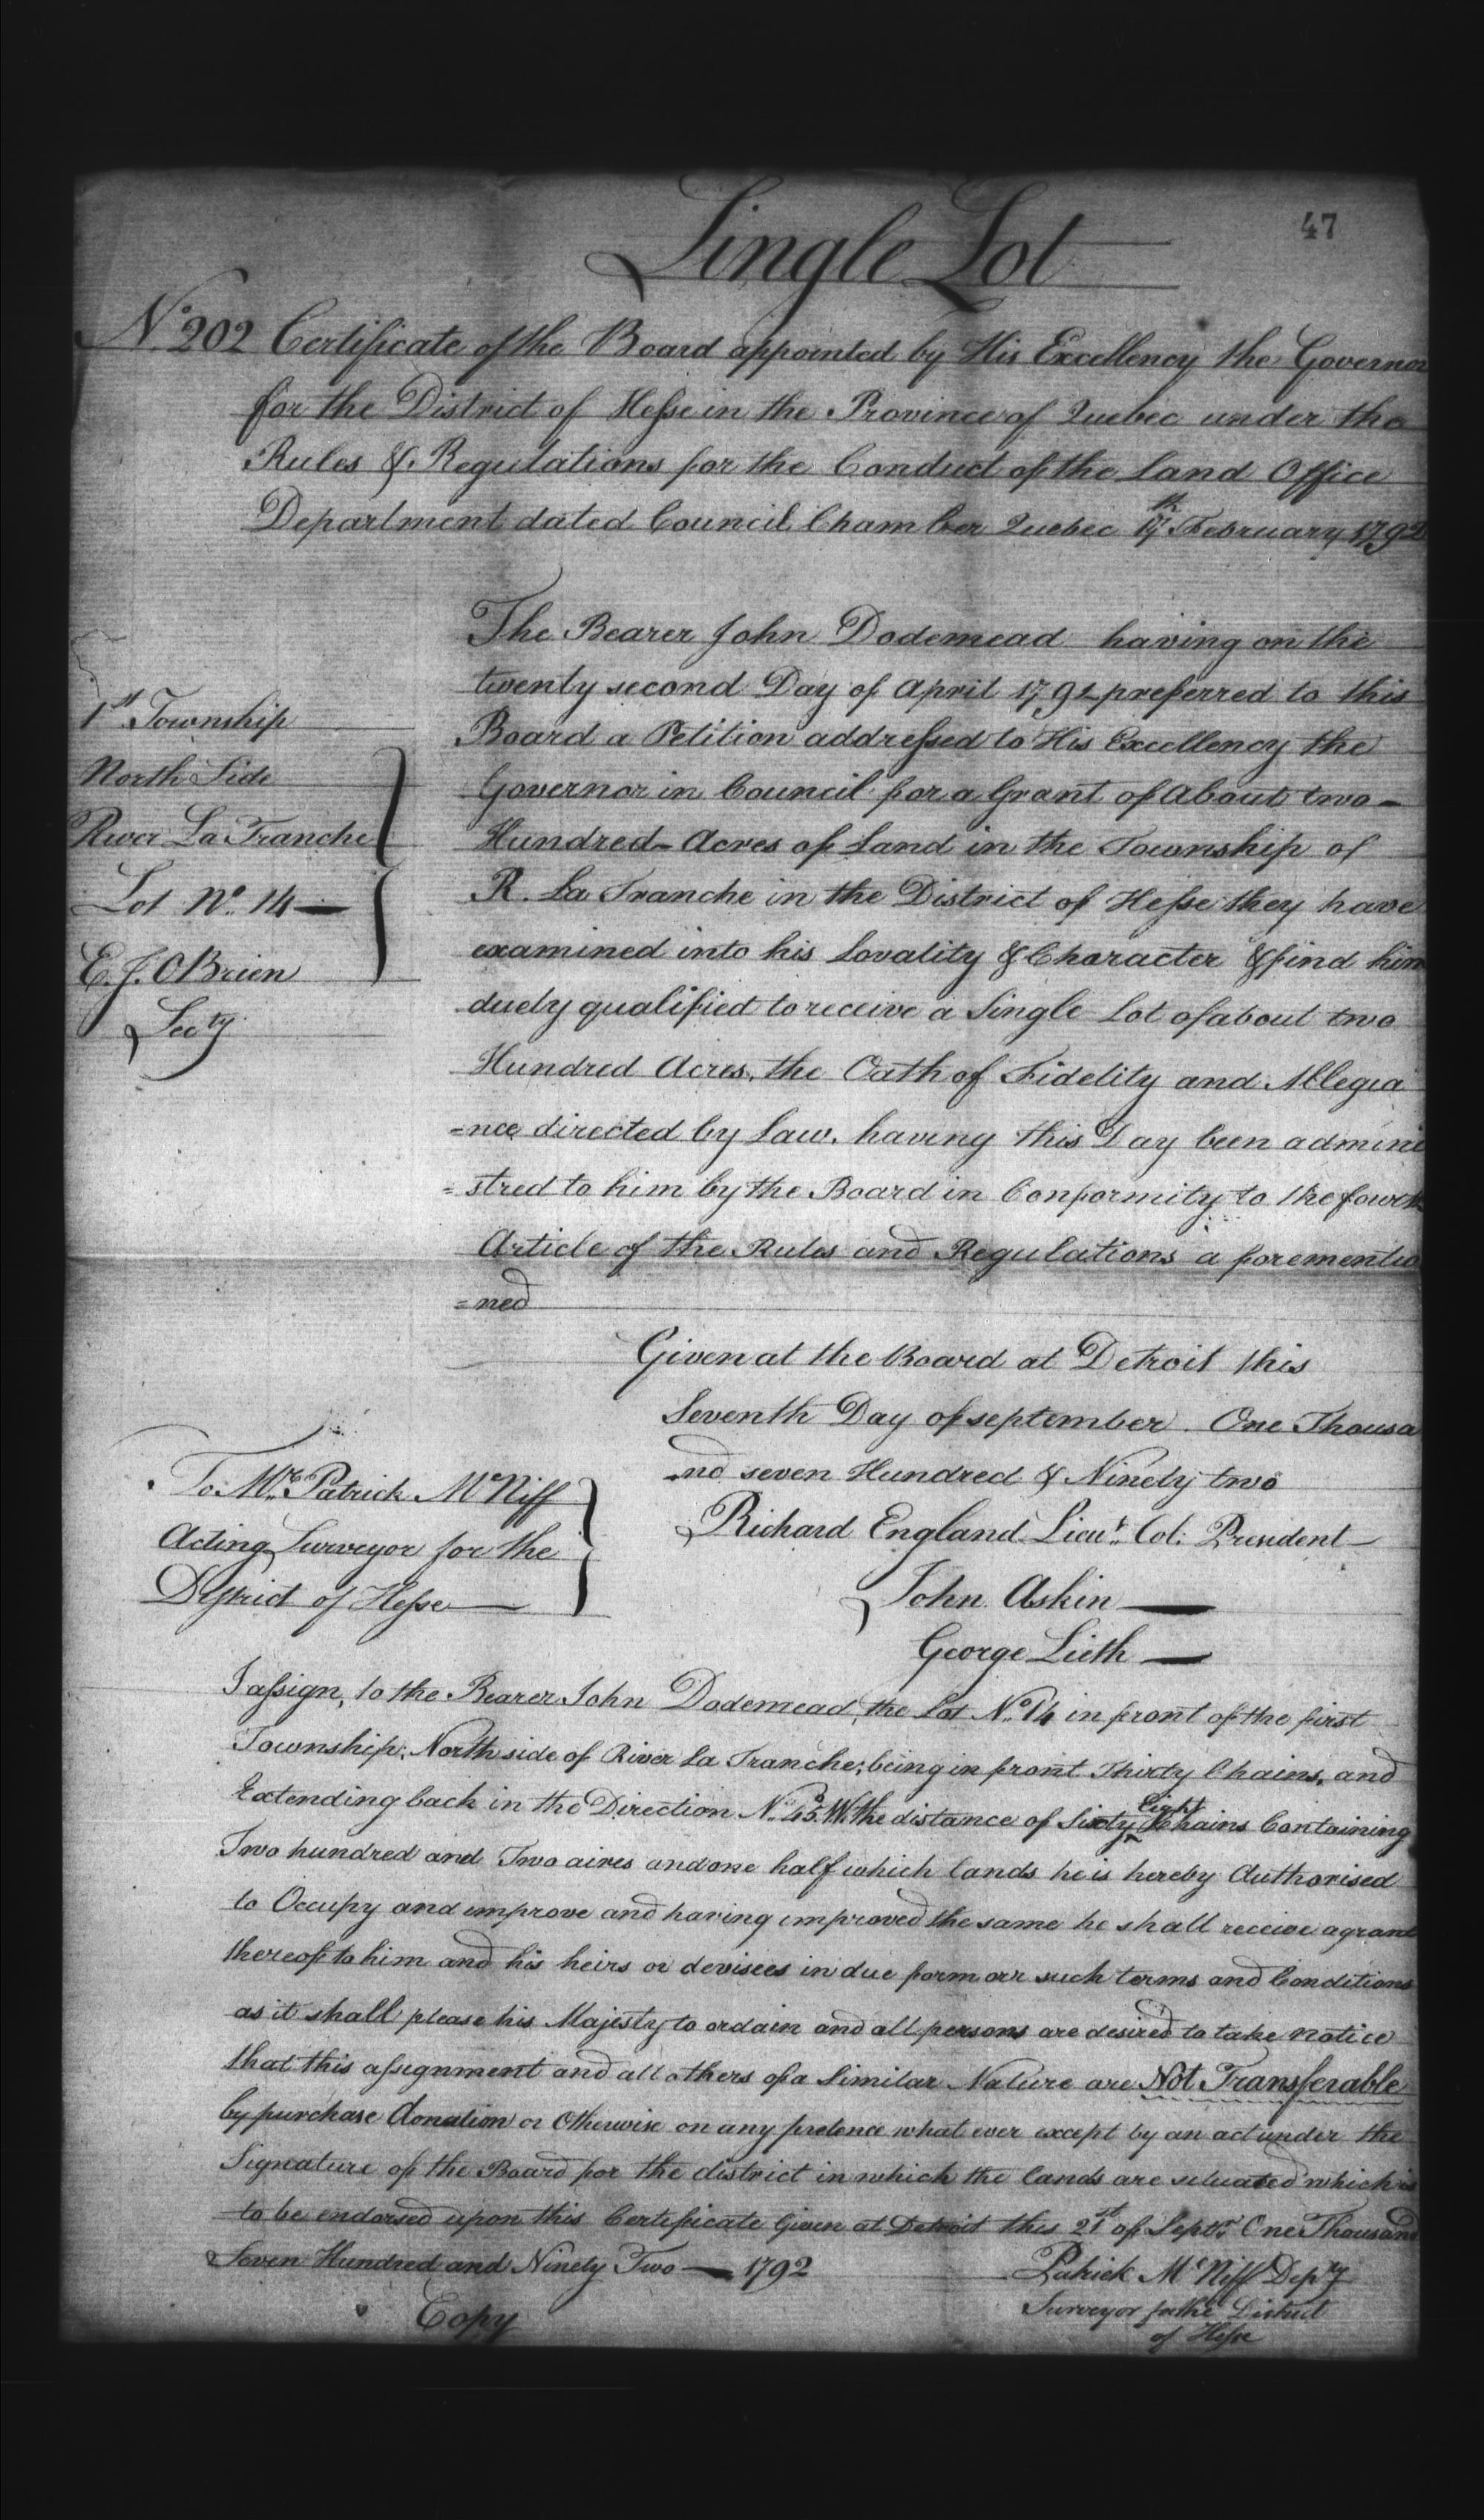 47
Single Lot
No. 202 Certificate of the Board appointed by His Excellency the Governor
for the District of Hesse in the Province of Quebec under the
Rules & Regulations for the Conduct of the Land Office
Department dated Council Chamber Quebec 17th February 1792
The Bearer John Dodemead having on the
twenty second Day of April 1791 preferred to this
Board a Petition addressed to His Excellency the
Governor in Council for a Grant of About two-
Hundred- Acres of Land in the Township of
R. La Tranche in the District of Hesse they have
examined into his Lovality & Character & find him
duely qualified to receive a Single Lot of about two
Hundred Acres, the Oath of Fidelity and Allegia
=nce directed by Law, having this Day been admini
=stred to him by the Board in Conformity to the fourth
Article of the Rules and Regulations a forementio
=ned
1st Township
North Side
River La Tranche
Lot No. 14—
E. J. OBrien
Secty
Given at the Board at Detroit this
Seventh Day of september. One Thousa
nd seven Hundred & Ninety two
Richard England Lieut. Col: President—
John Askin—
George Lieth—
To Mr. Patrick McNiff
Acting Surveyor for the
District of Hesse—
I assign, to the Bearer John Dodemead, the Lot No. 14 in front of the first
Township, North side of River La Tranche; being in front Thirty Chains, and
Extending back in the Direction N. 45° W. the distance of Sixty Eight Chains Containing
Two hundred and Two aires and one half which lands he is hereby Authorised
to Occupy and improve and having improved the same he shall receive a grant
thereof to him and his heirs or devisees in due form orr such terms and Conditions
as it shall please his Majesty to ordain and all persons are desired to take notice
that this assignment and all others of a Similar Nature are Not Transferable
by purchase donation or Otherwise on any pretence what ever except by an act under the
Signature of the Board for the district in which the lands are situated which is
to be endorsed upon this Certificate Given at Detroit this 21st of Septr. One Thousand
Seven Hundred and Ninety Two — 1792
Patrick McNiff Depy
Surveyor for the District
of Hesse
Copy